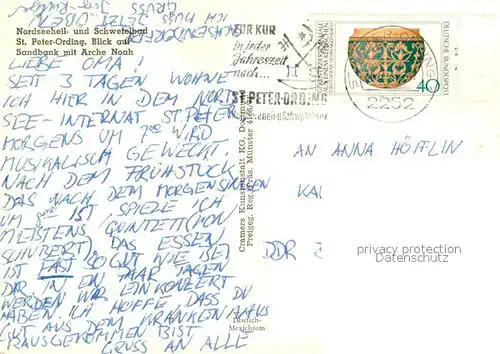 Nordseeheil- und Schwefelbad
St. Peter-Ording. Blick auf
Sandbank mit Arche Noah
LIEBE OMA!
SEIT 3 TAGEN WOHNE
ICH HIER IN DEM NORD
SEE-INTERNAT ST. PETER
MORGENS UM 7⁰⁰ WIRD
MUSIKALISCH GEWECKT.
NACH DEM FRÜHSTÜCK
DAS NACH DEM MORGENSINGEN
UM IST SPIELE ICH
MEISTENS QUINTETT (VON
SCHUBERT). DAS ESSEN
IST FAST SO GUT WIE BEI
DIR. IN EIN PAAR TAGEN
WERDEN WIR EIN KONZERT
HABEN. ICH HOFFE DASS DU
GUT AUS DEM KRANKENHAUS
RAUSGEKOMMEN BIST
GRUSS AN ALLE
ICH MUSS JETZT ÜBEN
GRUSS
ZUR KUR
in jeder
Jahreszeit
nach...
ST. PETER-ORDING
2252
DEUTSCHE BUNDESPOST
40
Cramers Kunstanstalt KG, Dortmund
Freigeg. Reg. Präs. Münster
Deutsch-
Mexichrom
AN ANNA HÖFFLIN
KAI
DDR
privacy protection
Datenschutz